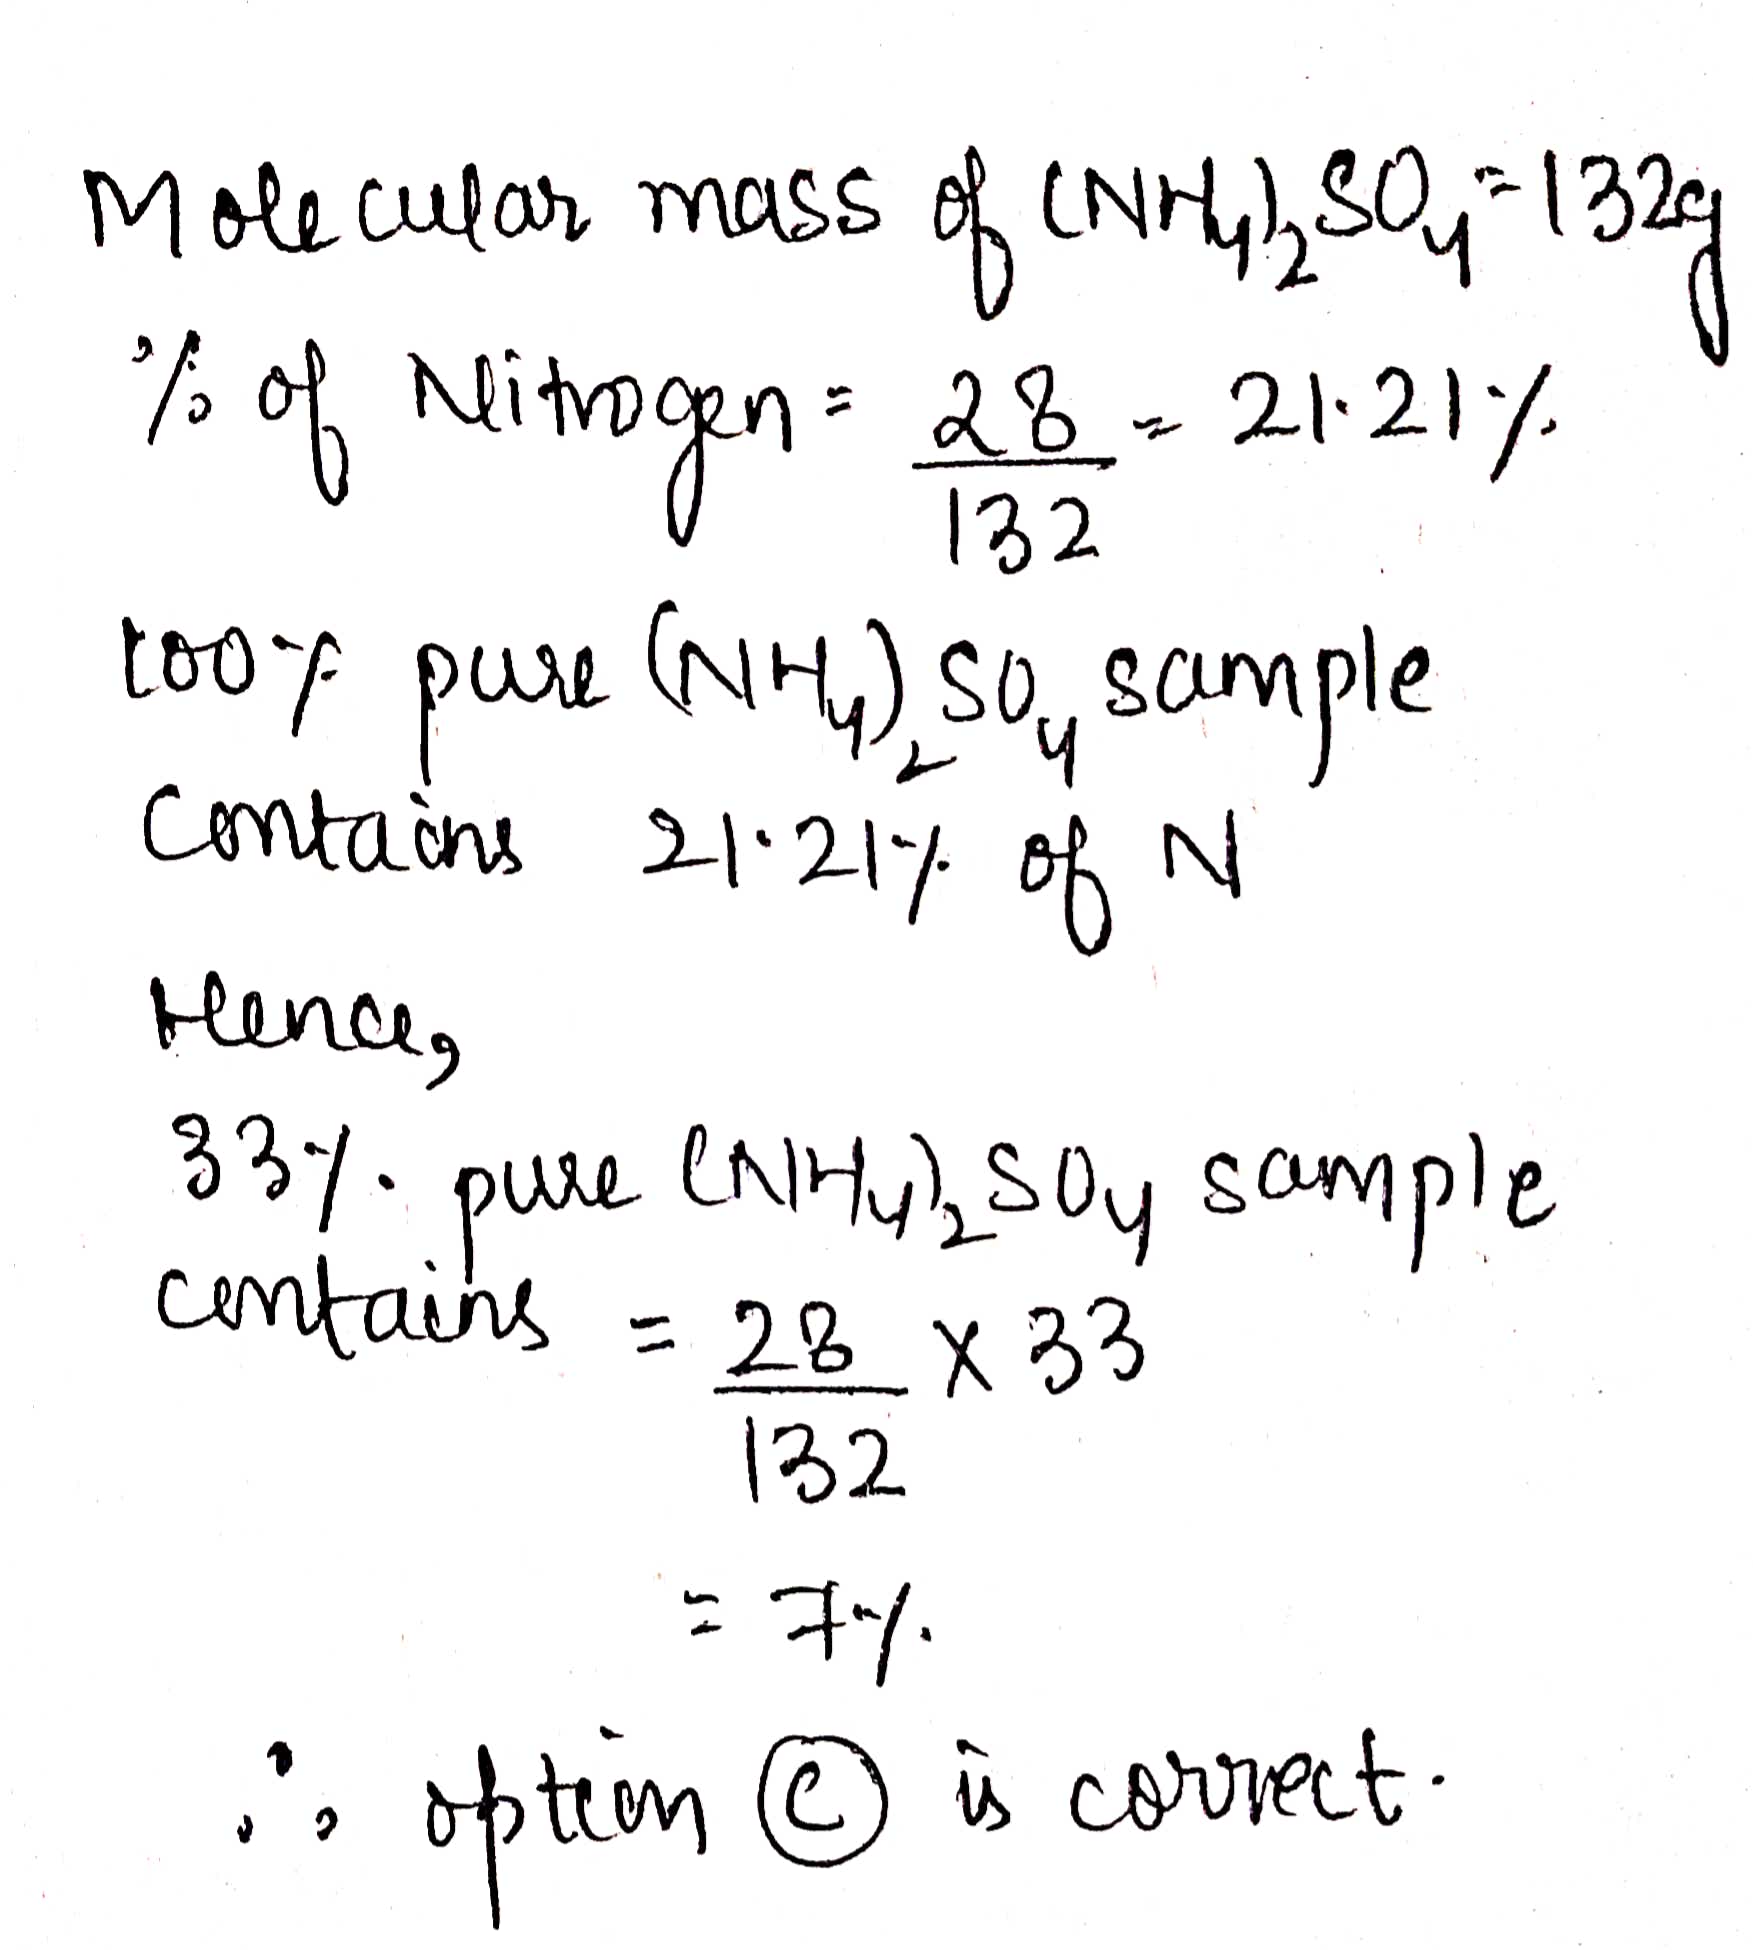 Molecular mass of (NH4)2SO4 = 132g
% of Nitrogen = 28/132 = 21.21%
100% pure (NH4)2SO4 sample
Contains 21.21% of N
Hence,
33% pure (NH4)2SO4 sample
contains = 28/132 x 33
= 7%
∴ option (C) is correct.